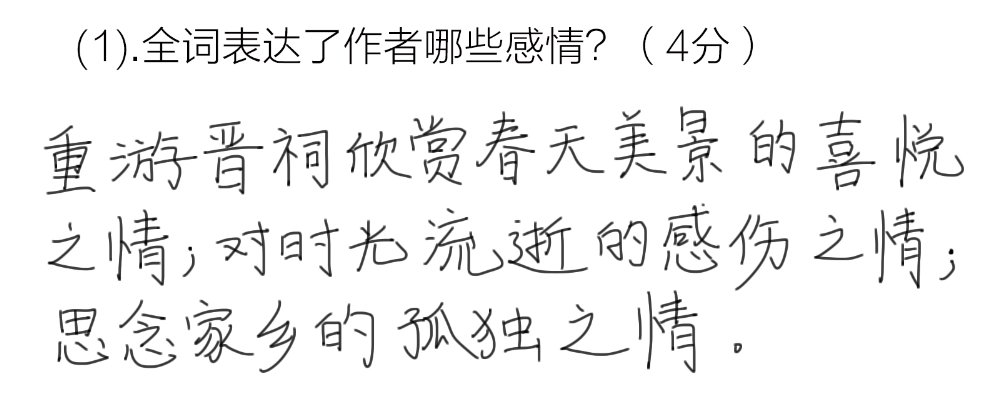 (1).全词表达了作者哪些感情？（4分）
重游晋祠欣赏春天美景的喜悦
之情；对时光流逝的感伤之情；
思念家乡的孤独之情。